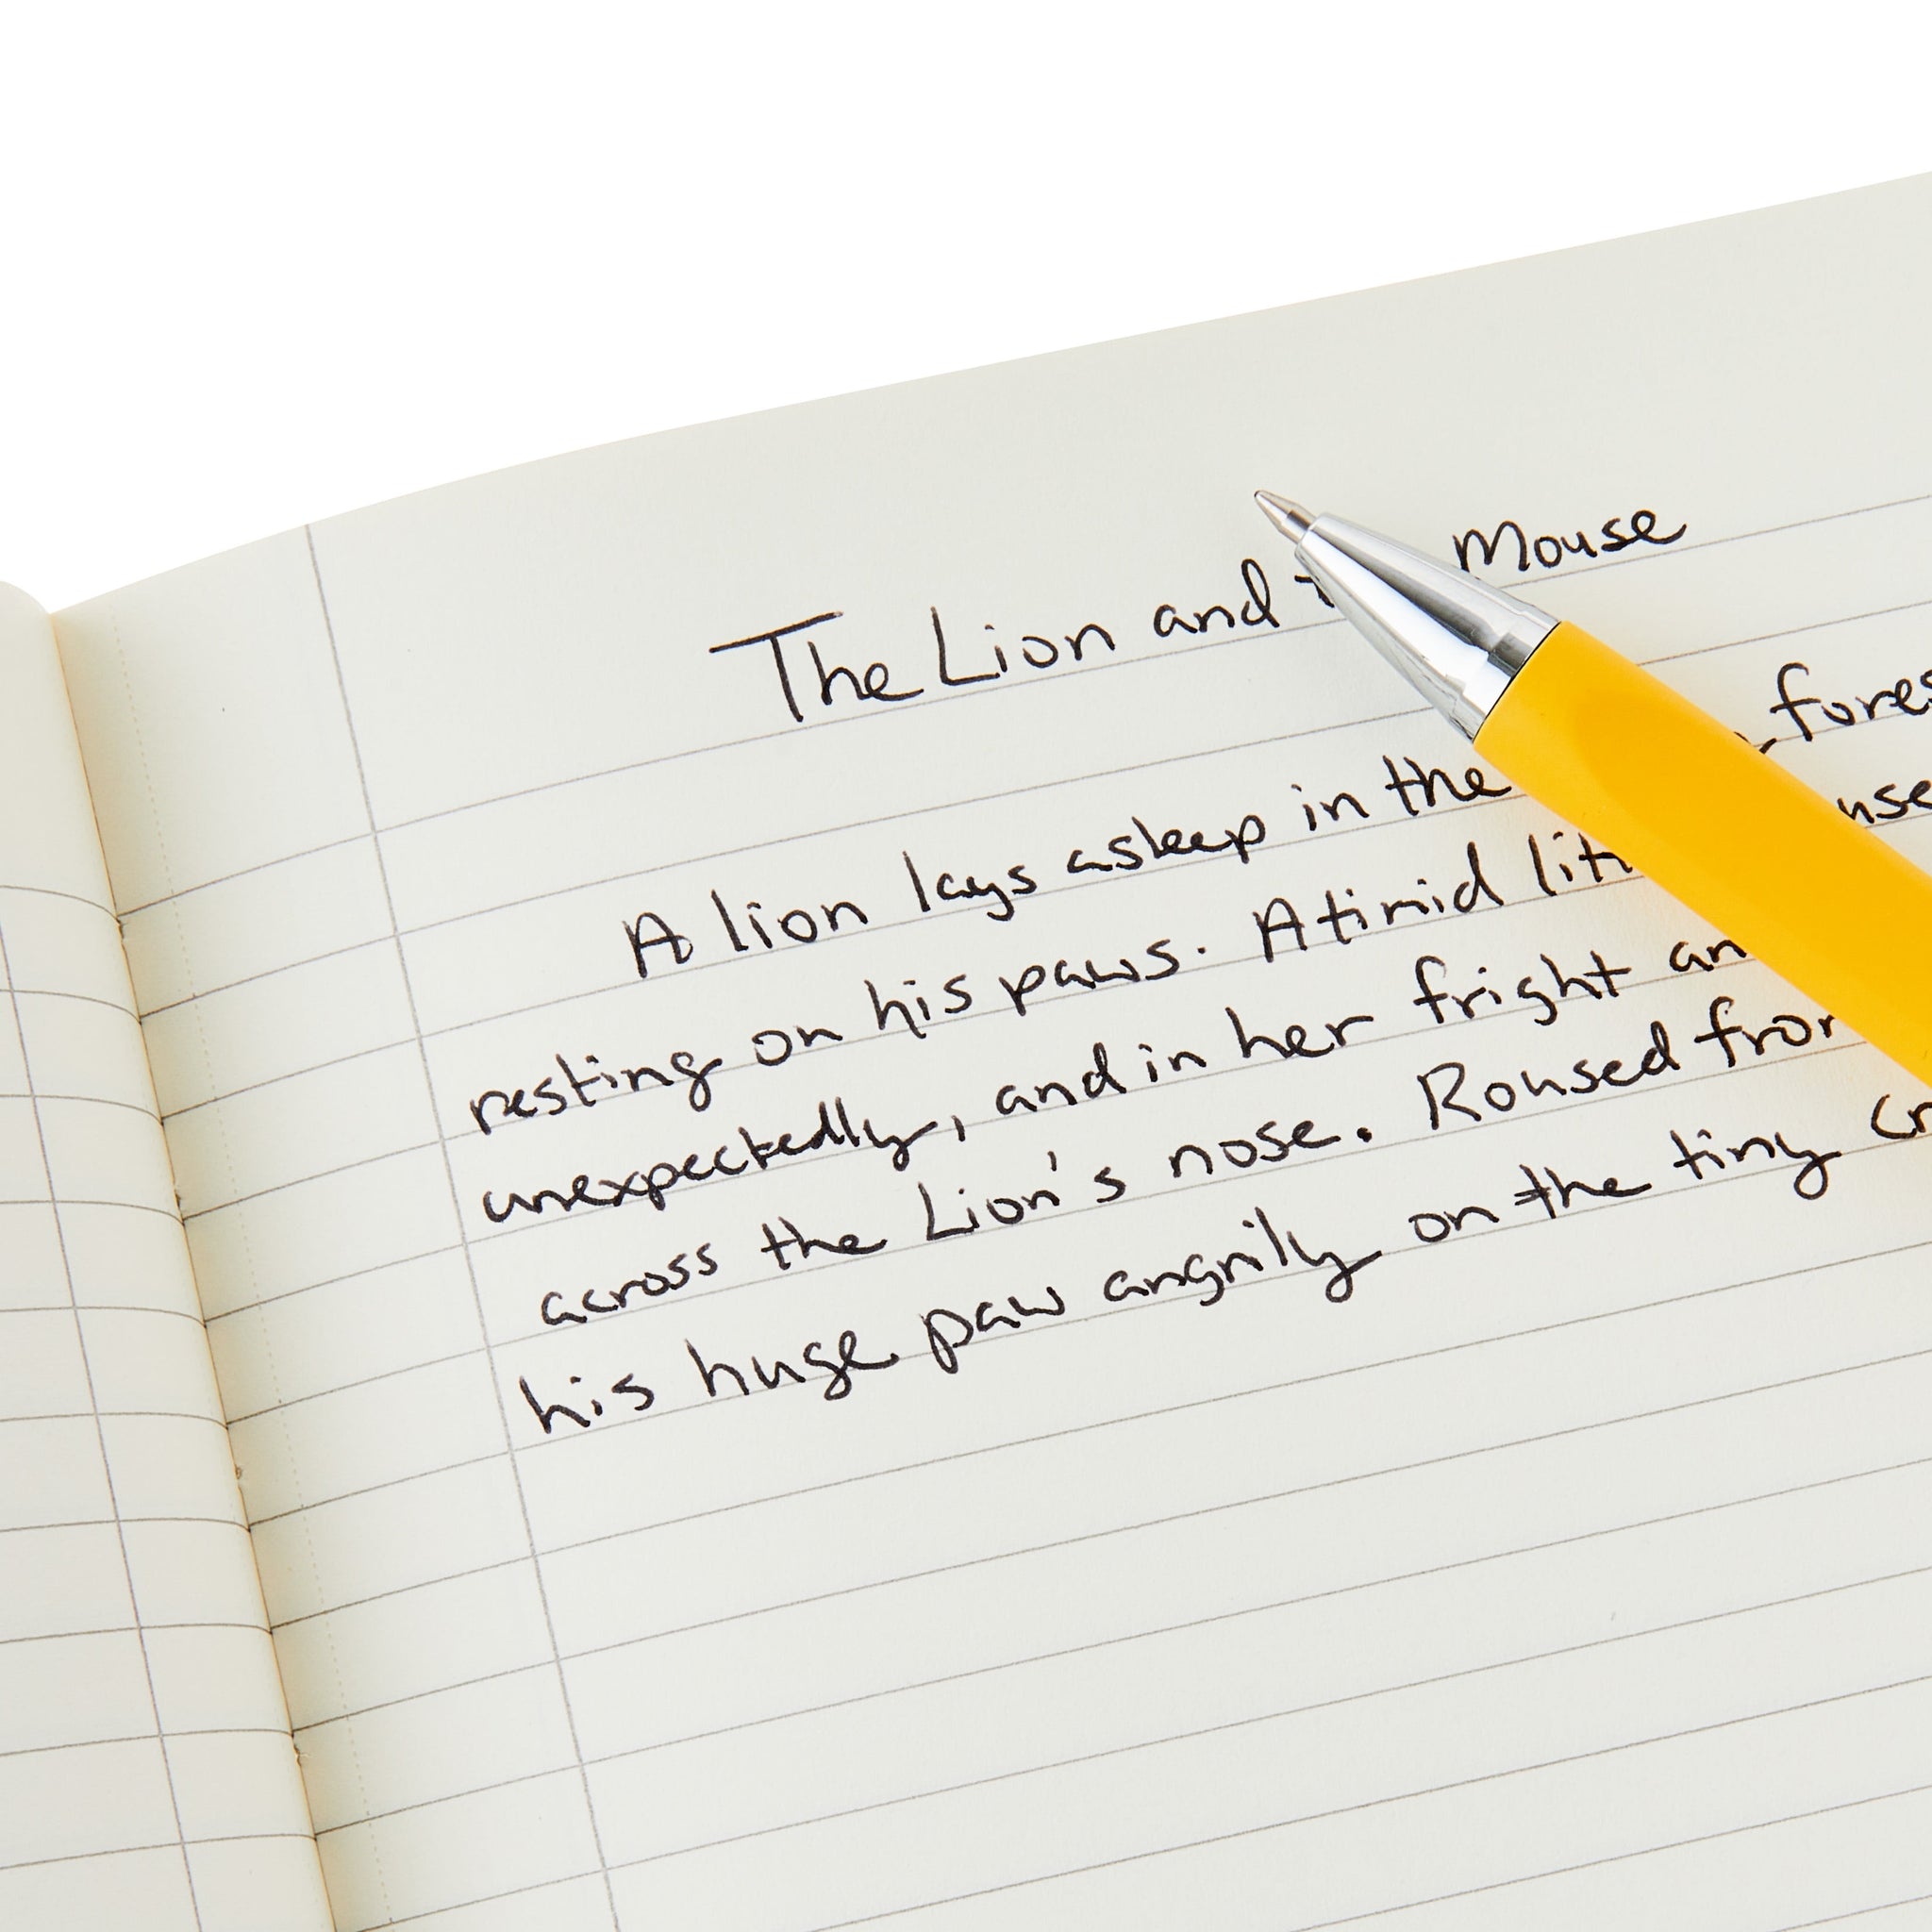 The Lion and t Mouse
A lion lays asleep in the fores
resting on his paws. A timid lit use
unexpectedly, and in her fright an
across the Lion's nose. Roused from
his huge paw angrily on the tiny cr